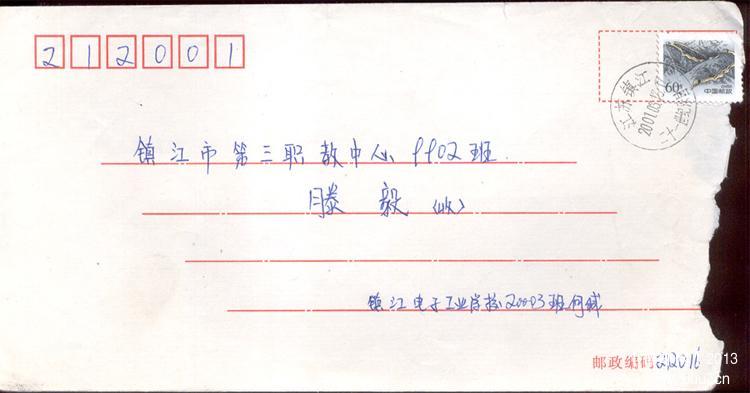 212001
60分
中国邮政
江苏镇江
2001.05
镇江市第三职教中心9902班
滕毅(收)
镇江电子工业学校20003班何斌
邮政编码 212016
2013
cn